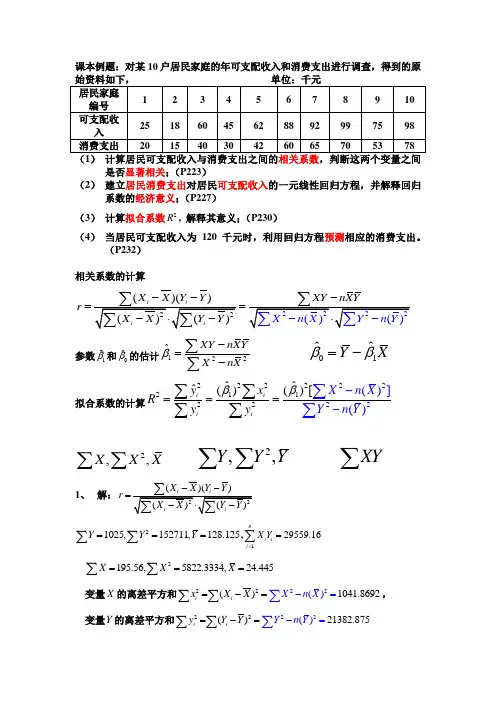 课本例题：对某 10 户居民家庭的年可支配收入和消费支出进行调查，得到的原
始资料如下， 单位：千元
居民家庭编号 1 2 3 4 5 6 7 8 9 10
可支配收入 25 18 60 45 62 88 92 99 75 98
消费支出 20 15 40 30 42 60 65 70 53 78
（1） 计算居民可支配收入与消费支出之间的相关系数，判断这两个变量之间
是否显著相关；（P223）
（2） 建立居民消费支出对居民可支配收入的一元线性回归方程，并解释回归
系数的经济意义；（P227）
（3） 计算拟合系数R²，解释其意义；（P230）
（4） 当居民可支配收入为 120 千元时，利用回归方程预测相应的消费支出。
（P232）
相关系数的计算
r = ∑(X_i − X̄)(Y_i − Ȳ) / (√∑(X_i − X̄)² · √∑(Y_i − Ȳ)²) = ∑XY − nX̄Ȳ / (√∑X² − n(X̄)² · √∑Y² − n(Ȳ)²)
参数β̂₁和β̂₀的估计 β̂₁ = ∑XY − nX̄Ȳ / ∑X² − nX̄² β̂₀ = Ȳ − β̂₁X̄
拟合系数的计算 R² = ∑ŷ_i² / ∑y_i² = (β̂₁)²∑x_i² / ∑y_i² = (β̂₁)²[∑X² − n(X̄)²] / ∑Y² − n(Ȳ)²
∑X, ∑X², X̄ ∑Y, ∑Y², Ȳ ∑XY
1、 解：r = ∑(X_i − X̄)(Y_i − Ȳ) / (√∑(X_i − X̄)² · √∑(Y_i − Ȳ)²)
∑Y = 1025, ∑Y² = 152711, Ȳ = 128.125、∑_{i=1}^{n} X_iY_i = 29559.16
∑X = 195.56, ∑X² = 5822.3334, X̄ = 24.445
变量X 的离差平方和∑x_i² = ∑(X_i − X̄)² = ∑X² − n(X̄)² = 1041.8692，
变量Y 的离差平方和∑y_i² = ∑(Y_i − Ȳ)² = ∑Y² − n(Ȳ)² = 21382.875